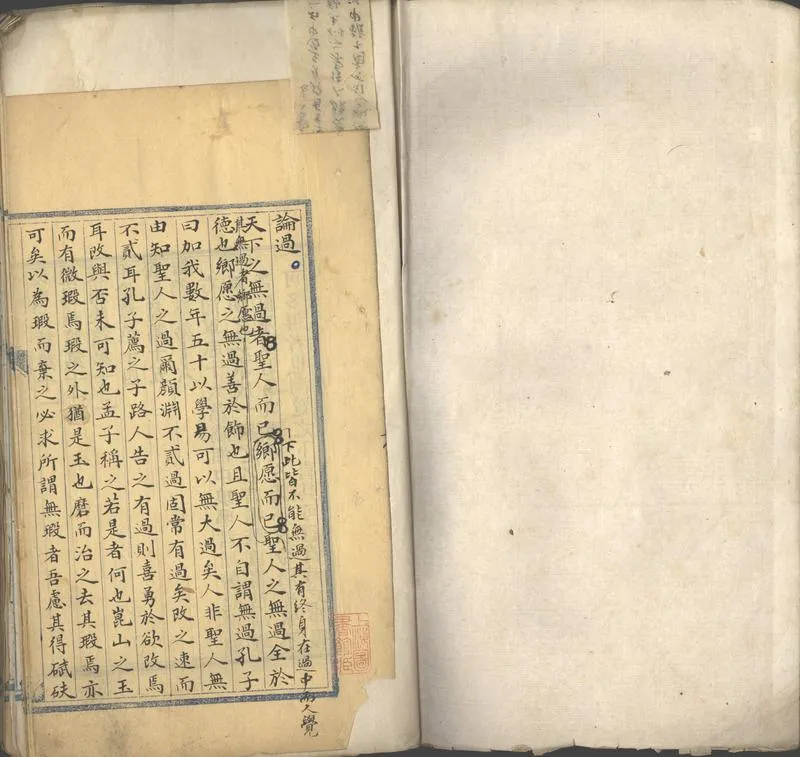 論過
下此皆不能無過其有終身在過中而不覺
天下之無過者聖人而已鄉愿而已聖人之無過全於
其無過者鄉愿也
德也鄉愿之無過善於飾也且聖人不自謂無過孔子
曰加我數年五十以學易可以無大過矣人非聖人無
由知聖人之過爾顏淵不貳過固常有過矣改之速而
不貳耳孔子薦之子路人告之有過則喜勇於欲改焉
耳改與否未可知也孟子稱之若是者何也崑山之玉
而有微瑕焉瑕之外猶是玉也磨而治之去其瑕焉亦
可矣以為瑕而棄之必求所謂無瑕者吾慮其得碔砆
上海圖
書館藏